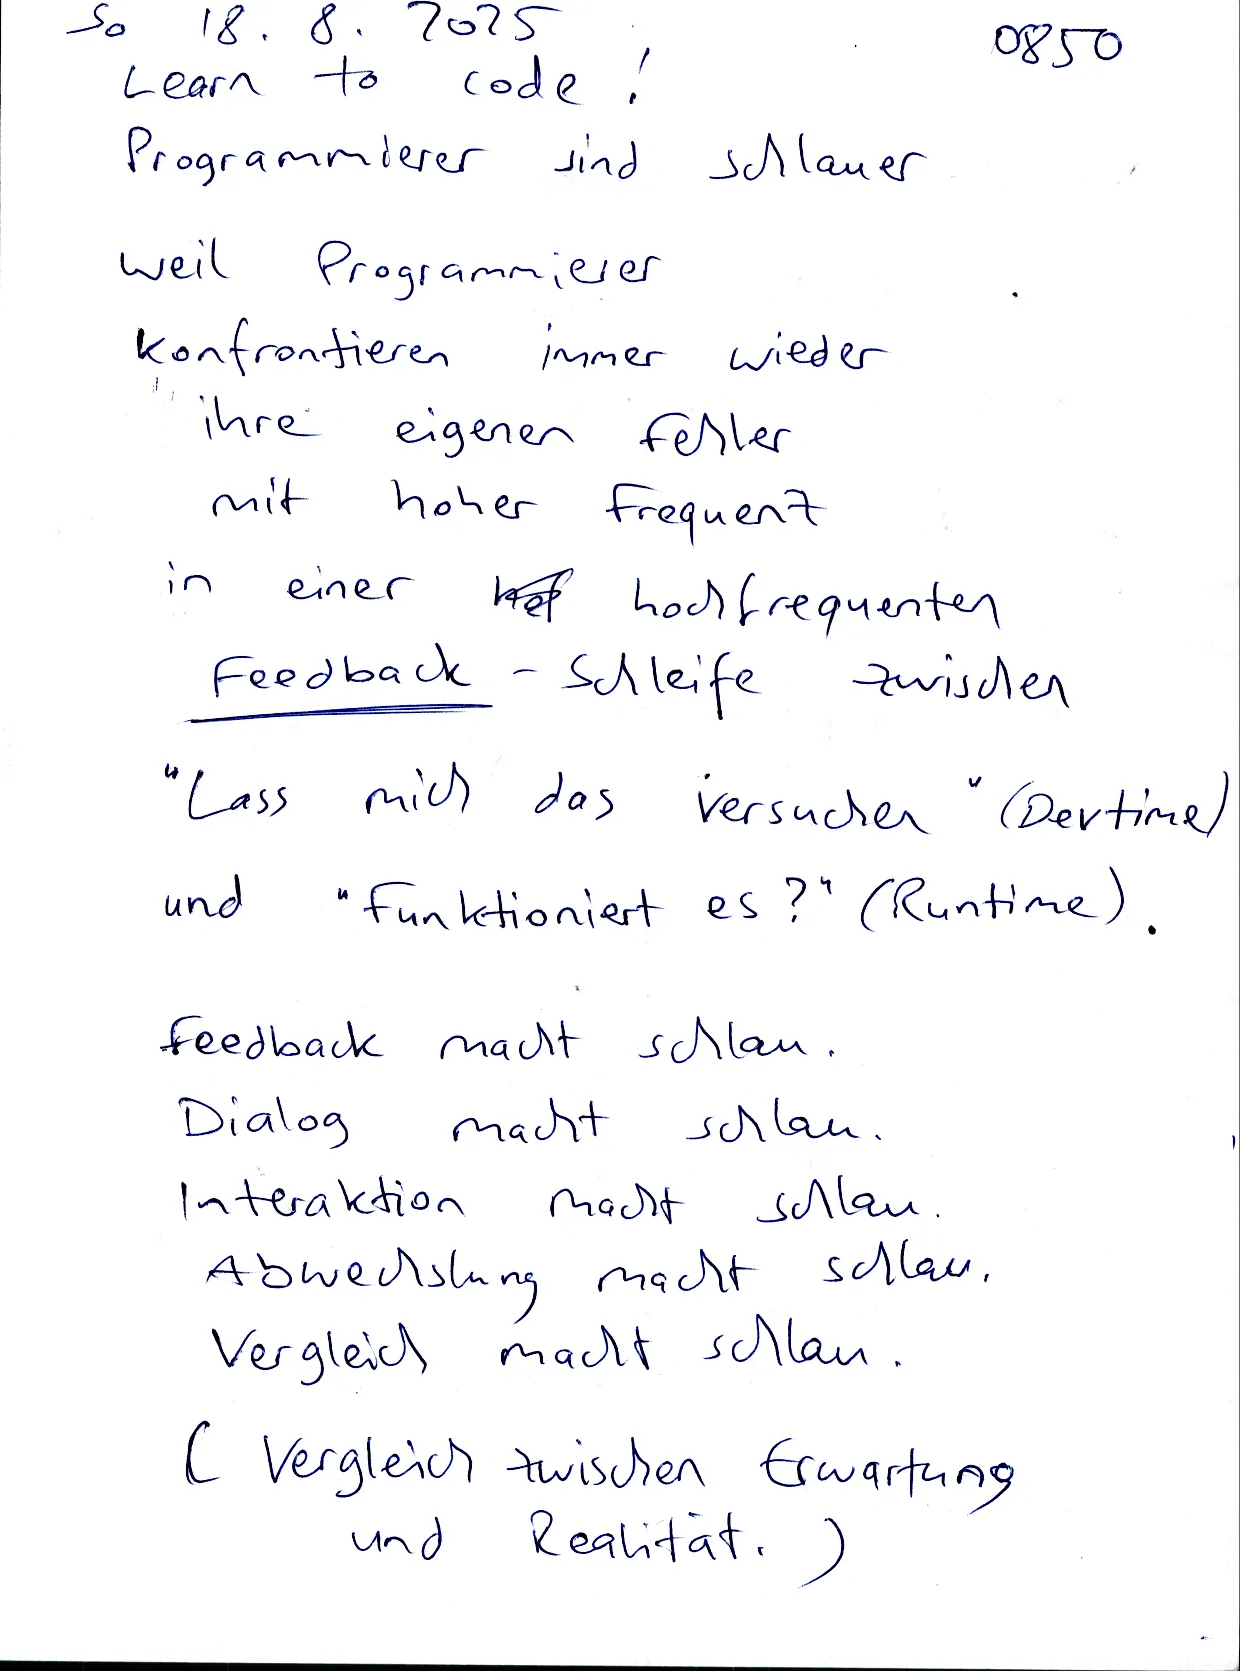 So 18. 8. 2025 0850
Learn to code!
Programmierer sind schlauer
weil Programmierer
konfrontieren immer wieder
ihre eigenen Fehler
mit hoher Frequenz
in einer hochfrequenten
Feedback - Schleife zwischen
"Lass mich das versuchen" (Devtime)
und "Funktioniert es?" (Runtime).
Feedback macht schlau.
Dialog macht schlau.
Interaktion macht schlau.
Abwechslung macht schlau.
Vergleich macht schlau.
( Vergleich zwischen Erwartung
und Realität. )